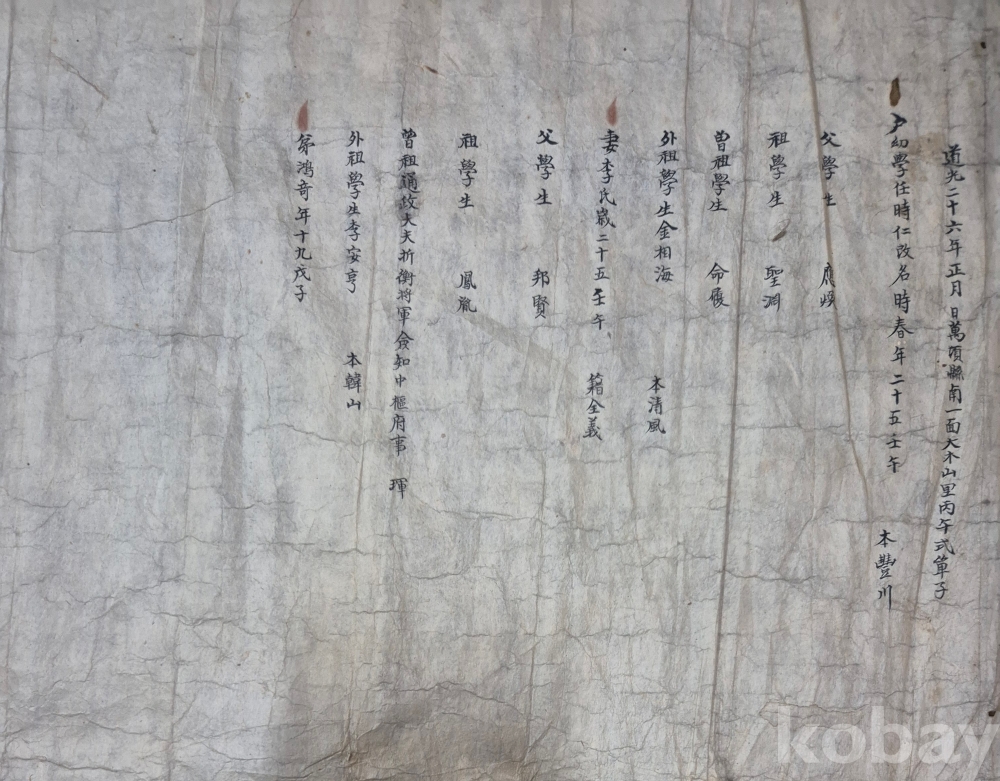 道光二十六年正月 日萬頃縣南一面大木山里丙午式單子
戶幼學任時仁改名時春年二十五壬午 本豐川
父學生 應煥
祖學生 聖淵
曾祖學生 命履
外祖學生金相海 本清風
妻李氏歲二十五壬午 籍全義
父學生 邦賢
祖學生 鳳胤
曾祖通政大夫折衝將軍僉知中樞府事 琿
外祖學生李安亨 本韓山
弟鴻奇年十九戊子
kobay